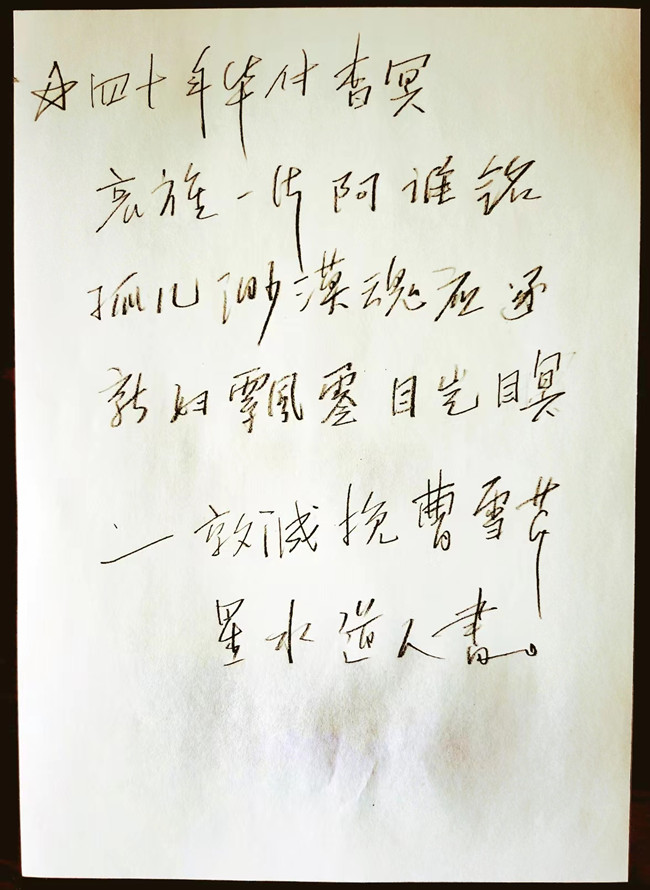 ☆四十年华付杳冥
哀旌一片阿谁铭
孤儿渺漠魂应逐
新妇飄零目岂瞑
—敦诚挽曹雪芹
星水道人書。